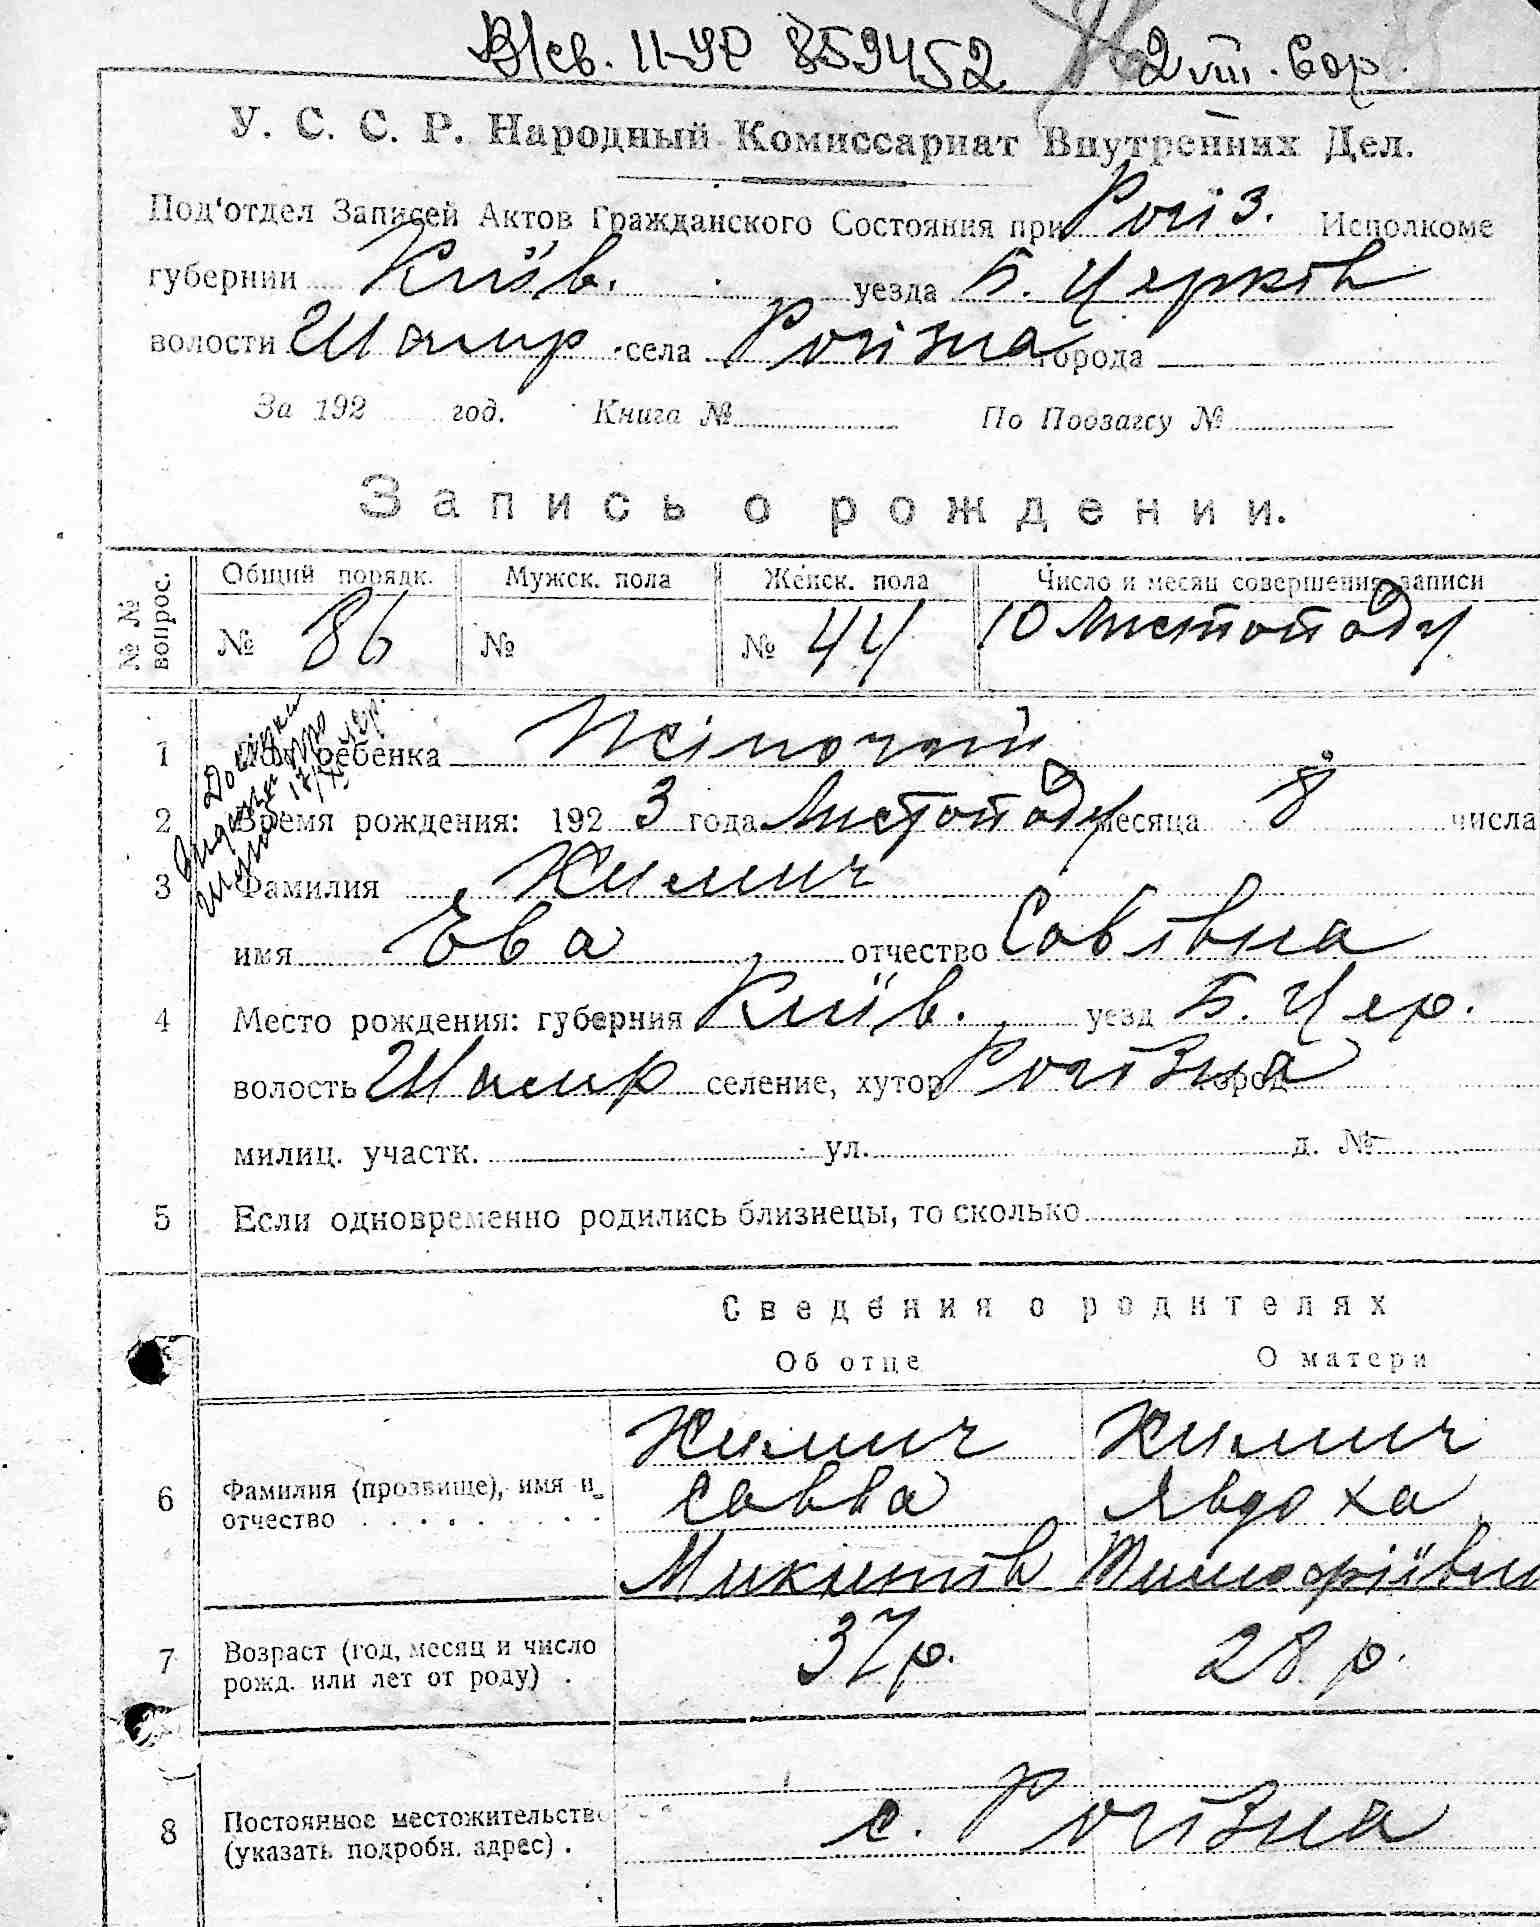 II-УР 859452 2 VIII.
У. С. С. Р. Народный Комиссариат Внутренних Дел.
Под'отдел Записей Актов Гражданского Состояния при Рогіз. Исполкоме
губернии Київ. уезда Б. Церков
волости села Рогізна города
За 192 год. Книга № По Подзагсу №
Запись о рождении.
№ № вопрос. Общий порядк. Мужск. пола Женск. пола Число и месяц совершения записи
№ 86 № № 44 10 Листопаду
1 Пол ребенка Жіночий
2 Время рождения: 192 3 года Листопаду месяца 8 числа
3 Фамилия Килич
имя Ева отчество Савівна
4 Место рождения: губерния Київ. уезд Б. Цер.
волость селение, хутор Рогізна город
милиц. участк. ул. д. №
5 Если одновременно родились близнецы, то сколько
Сведения о родителях
Об отце О матери
6 Фамилия (прозвище), имя и отчество Килич Килич
Савва Явдоха
Микитів Тимофіївна
7 Возраст (год, месяц и число рожд. или лет от роду) . 37 р. 28 р.
8 Постоянное местожительство (указать подробн. адрес) . с. Рогізна